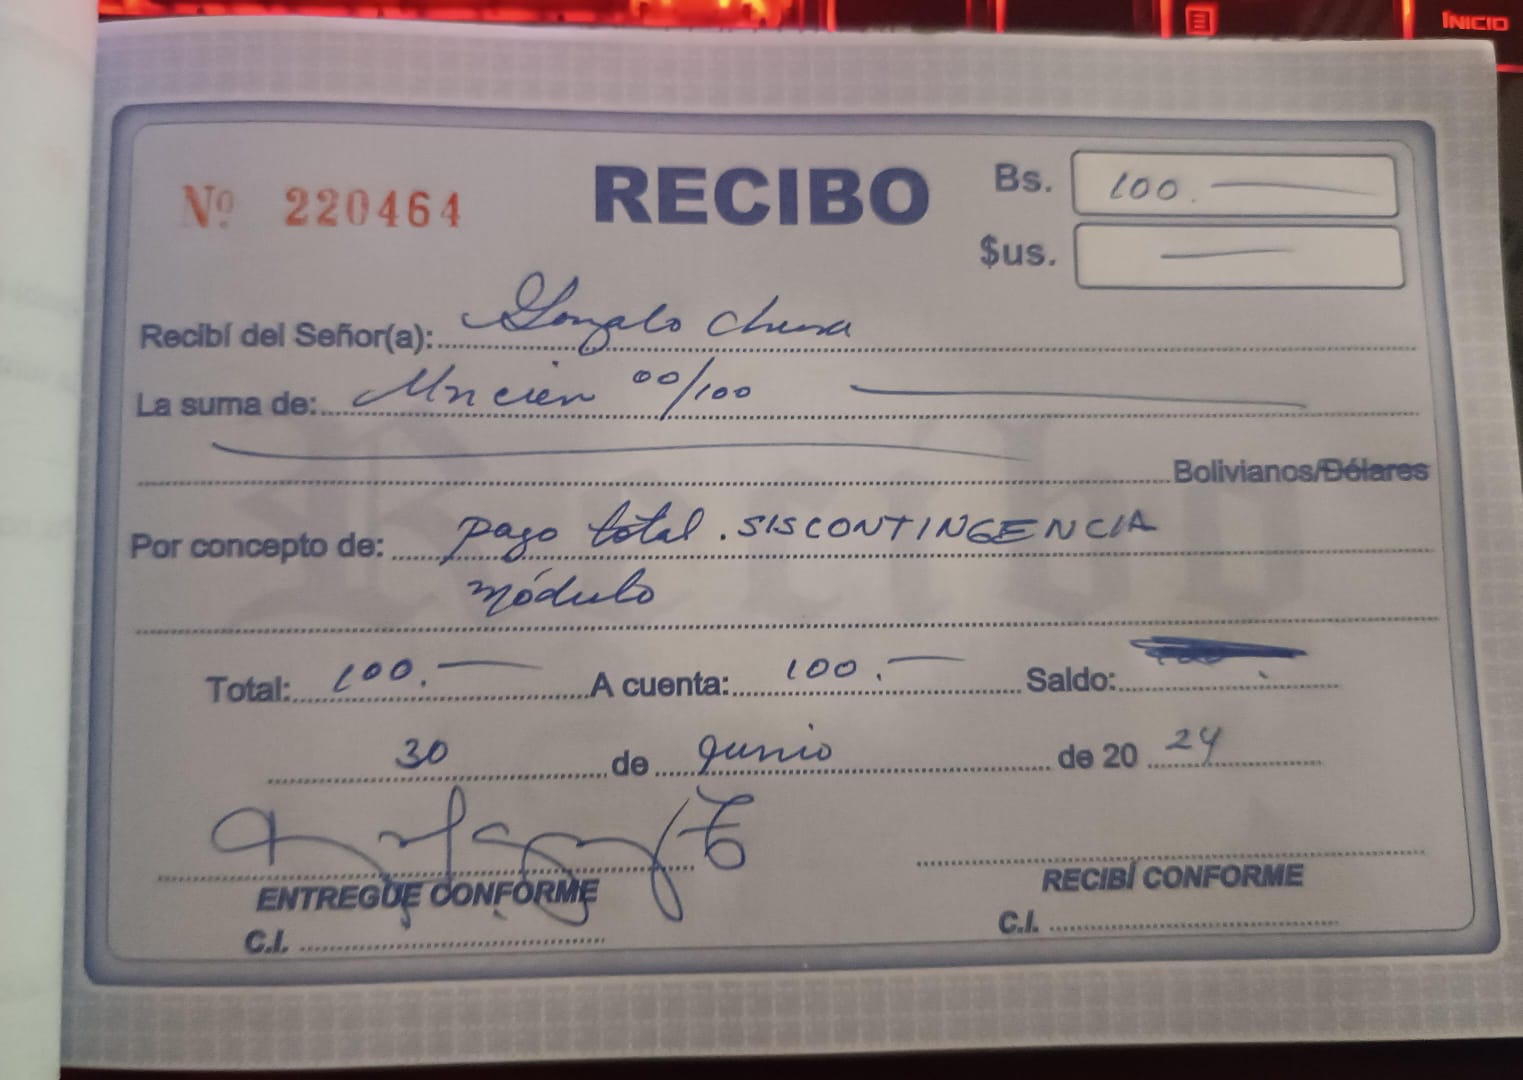 INICIO
Nº 220464
RECIBO
Bs. 100.
$us.
Recibí del Señor(a): Gonzalo
La suma de: Un cien 00/100
Bolivianos/Dólares
Por concepto de: pago total. SISCONTINGENCIA
módulo
Total: 100. A cuenta: 100. Saldo:
30 de Junio de 20 24
ENTREGUE CONFORME
RECIBÍ CONFORME
C.I.
C.I.